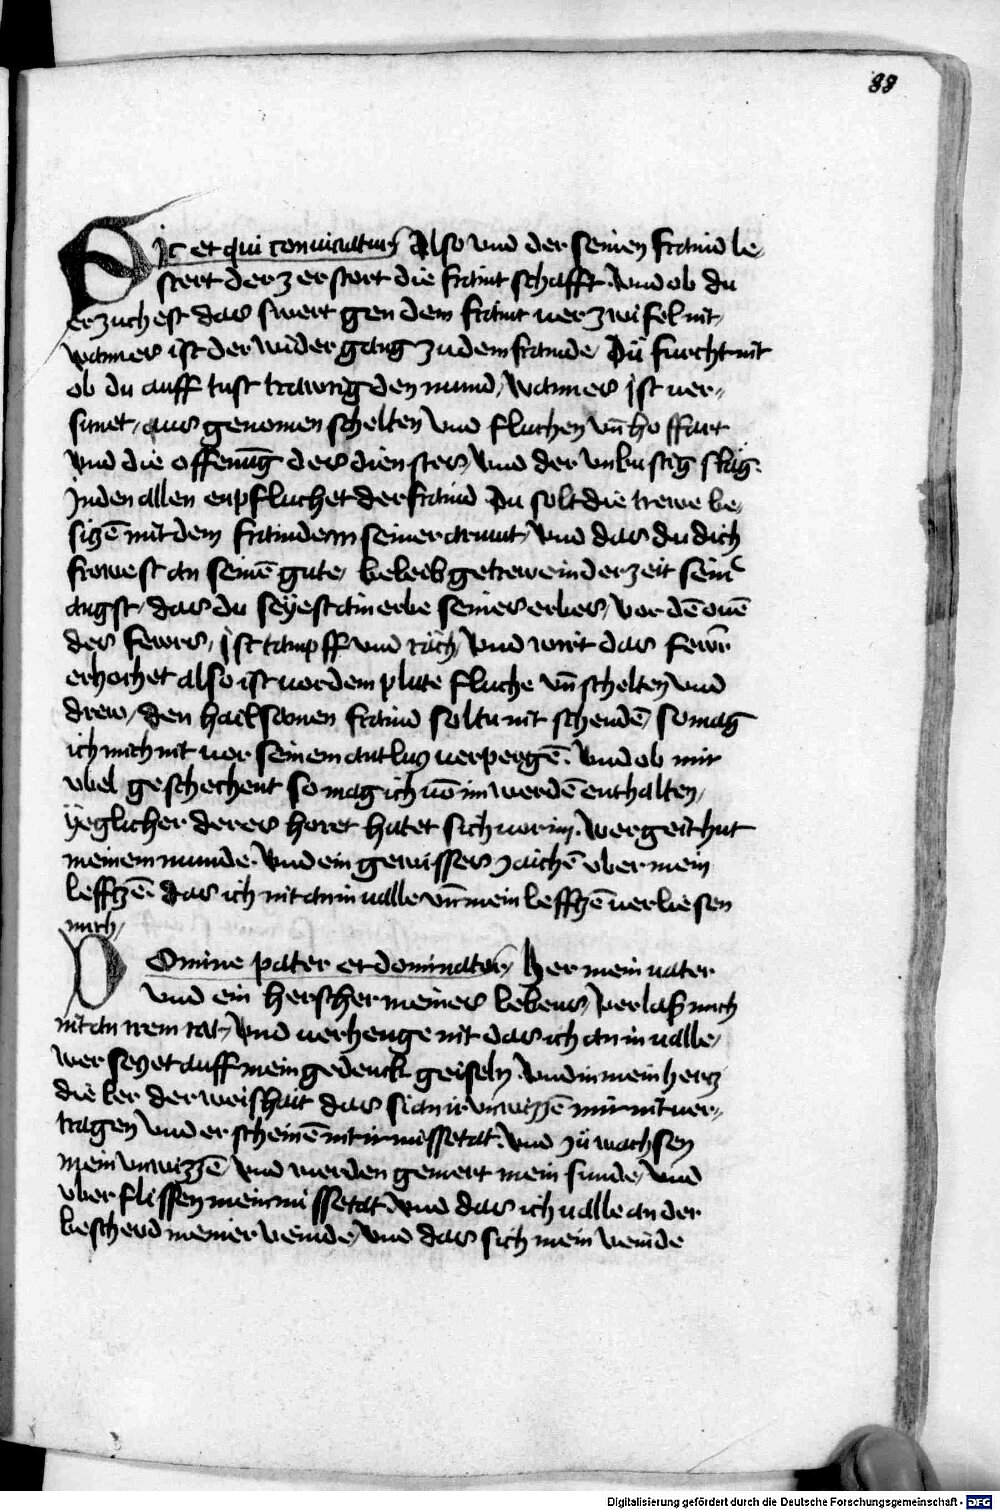 88
Sic et qui conuiciatur Also vnd der seinen fraind le-
stert der zerstort die fraint schafft. vnd ob du
erzuchest das swert gen dem fraint uerzwifel nit
wann es ist der widergang zu dem frainde Du furcht nit
ob du auff tust trawrig den mund, wann es ist uer-
sunet, aus genomen schelten vnd fluchen vn̄ hoffart
vnd die offenūg des dienstes vnd der vnkustig slag.
Jn den allen enpfluchet der fraind Du solt die trewe be-
siczē mit dem frainde in seiner armut, vnd das du dich
frowest an seinē gute, beleib getrewe in der zeit seinr
angst, das du seÿest ain erbe seines erbes, vor dē ouē
des fewrs, ist tampff vnd rach, vnd wirt das fewr
erhochet also ist uor dem plute fluche vn̄ schelten vnd
drew, den hailsamen fraind soltu nit schendē, so mag
ich mich nit uor seinem antlucz uerpergē. vnd ob mir
vbel geschechent so mag ich uō im werdē enthalten,
ÿeglicher der es horet hutet sich uor im. wer geit hut
meinem munde. vnd ein gewisses zaichē vber mein
leffczē. das ich nit an in ualle vn̄ mein leffczē uerliesen
mich,
Domine pater et dominator, Her mein uater
vnd ein herscher meines lebens, verlaß mich
nit an irem rat, vnd uerhenge nit das ich an in ualle,
wer seczet auff mein gedenck geiseln. vnd in mein hercz
die ler der weishait das si an ir vnwizzē mir nit uer-
tragen vnd erscheinē nit ir missetat. vnd zu wachsen
mein vnwizzē vnd werden gemert mein sunde, vnd
vber flissen mein missetat. vnd das ich ualle an der
bescheud meiner veinde, vnd das sich mein veinde
Digitalisierung gefördert durch die Deutsche Forschungsgemeinschaft - DFG